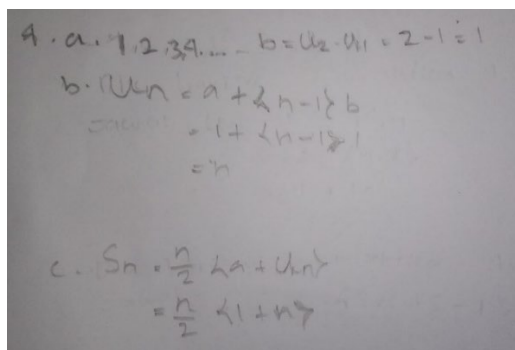 4. a. 1, 2, 3, 4. .... b = U2 - U1 = 2 - 1 = 1
b. Un = a + {n-1} b
= 1 + {n-1} 1
= n
c. Sn = n/2 {a + Un}
= n/2 {1 + n}